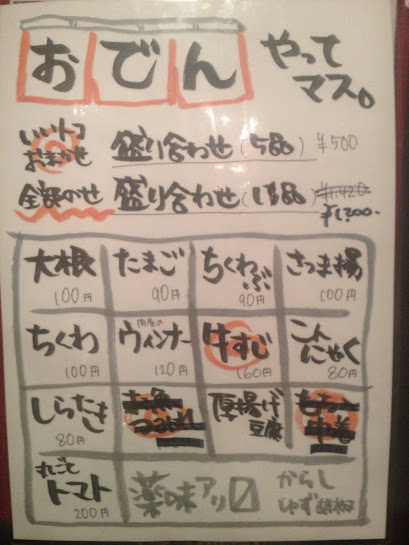 おでん
やって
マス。
いいトコ
おまかせ
盛り合わせ(5品) ¥500
全部のせ
盛り合わせ
¥1,200-
大根
100円
たまご
90円
ちくわぶ
90円
さつま揚
100円
ちくわ
100円
ウィンナー
120円
牛すじ
160円
こんにゃく
80円
しらたき
80円
厚揚げ
豆腐
丸ごと
トマト
200円
薬味アリ〼
からし
ゆず胡椒